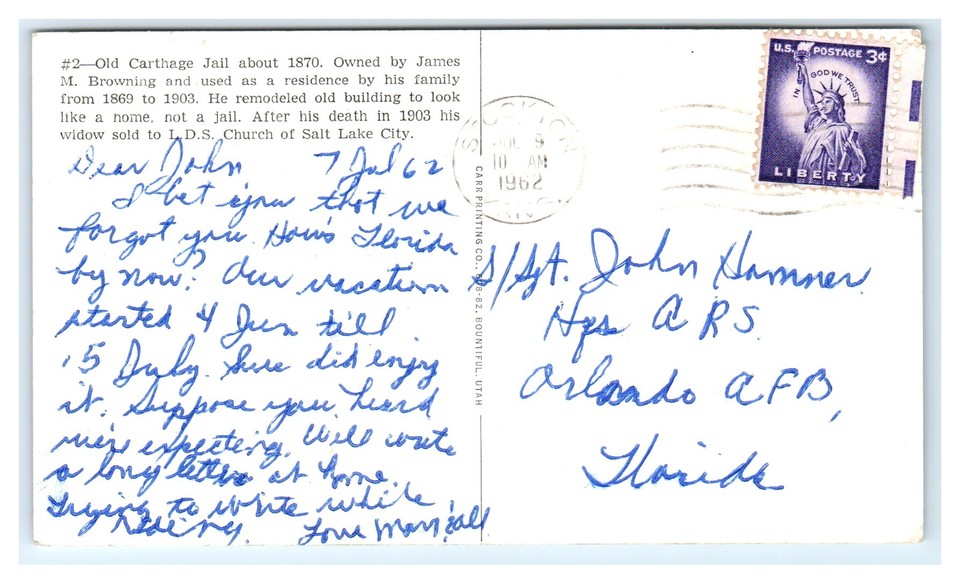 #2—Old Carthage Jail about 1870. Owned by James
M. Browning and used as a residence by his family
from 1869 to 1903. He remodeled old building to look
like a nome, not a jail. After his death in 1903 his
widow sold to L.D.S. Church of Salt Lake City.
Dear John 7 Jul 62
I bet you that we
forgot you. How's Florida
by now? Our vacation
started 4 Jun till
15 July. Sure did enjoy
it. Suppose you heard
we're expecting. Will write
a long letter at home.
Trying to write while
riding. Love Mary
CARR PRINTING CO., BOUNTIFUL, UTAH
STOCKTON
JUL 9
10 AM
1962
U.S. POSTAGE 3¢
IN GOD WE TRUST
LIBERTY
S/Sgt. John Hamner
Hqs ARS
Orlando AFB,
Florida